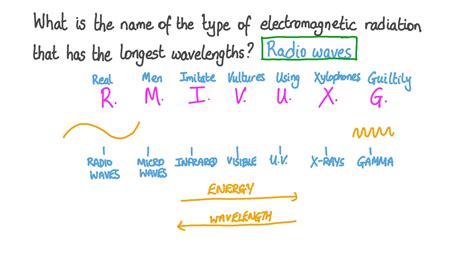 What is the name of the type of electromagnetic radiation
that has the longest wavelengths? Radio waves
Real Men Imitate Vultures Using Xylophones Guiltily
R. M. I. V. U. X. G.
RADIO MICRO INFRARED VISIBLE U.V. X-RAYS GAMMA
WAVES WAVES
ENERGY
WAVELENGTH